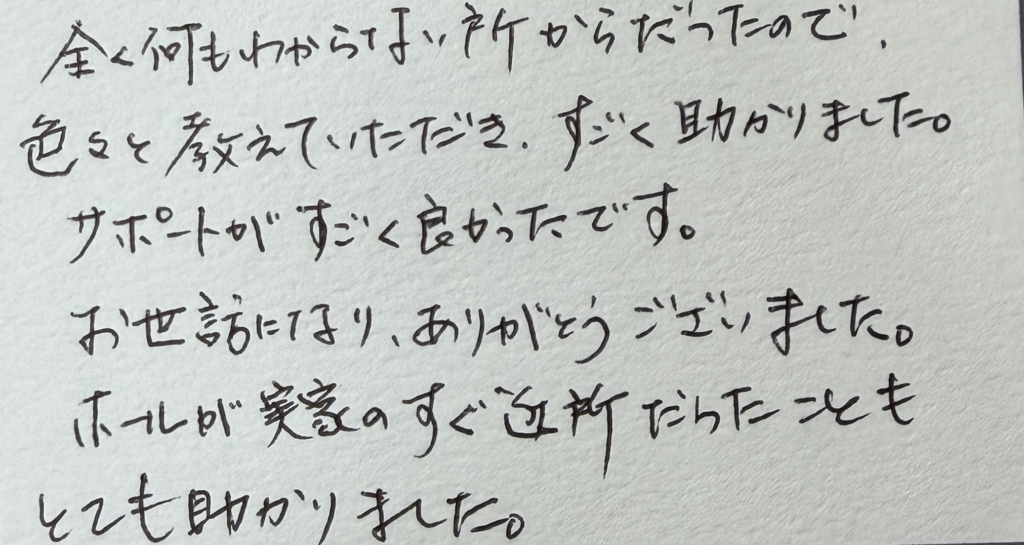 全く何もわからない所からだったので、
色々と教えていただき、すごく助かりました。
サポートがすごく良かったです。
お世話になり、ありがとうございました。
ホールが実家のすぐ近所だったことも
とても助かりました。